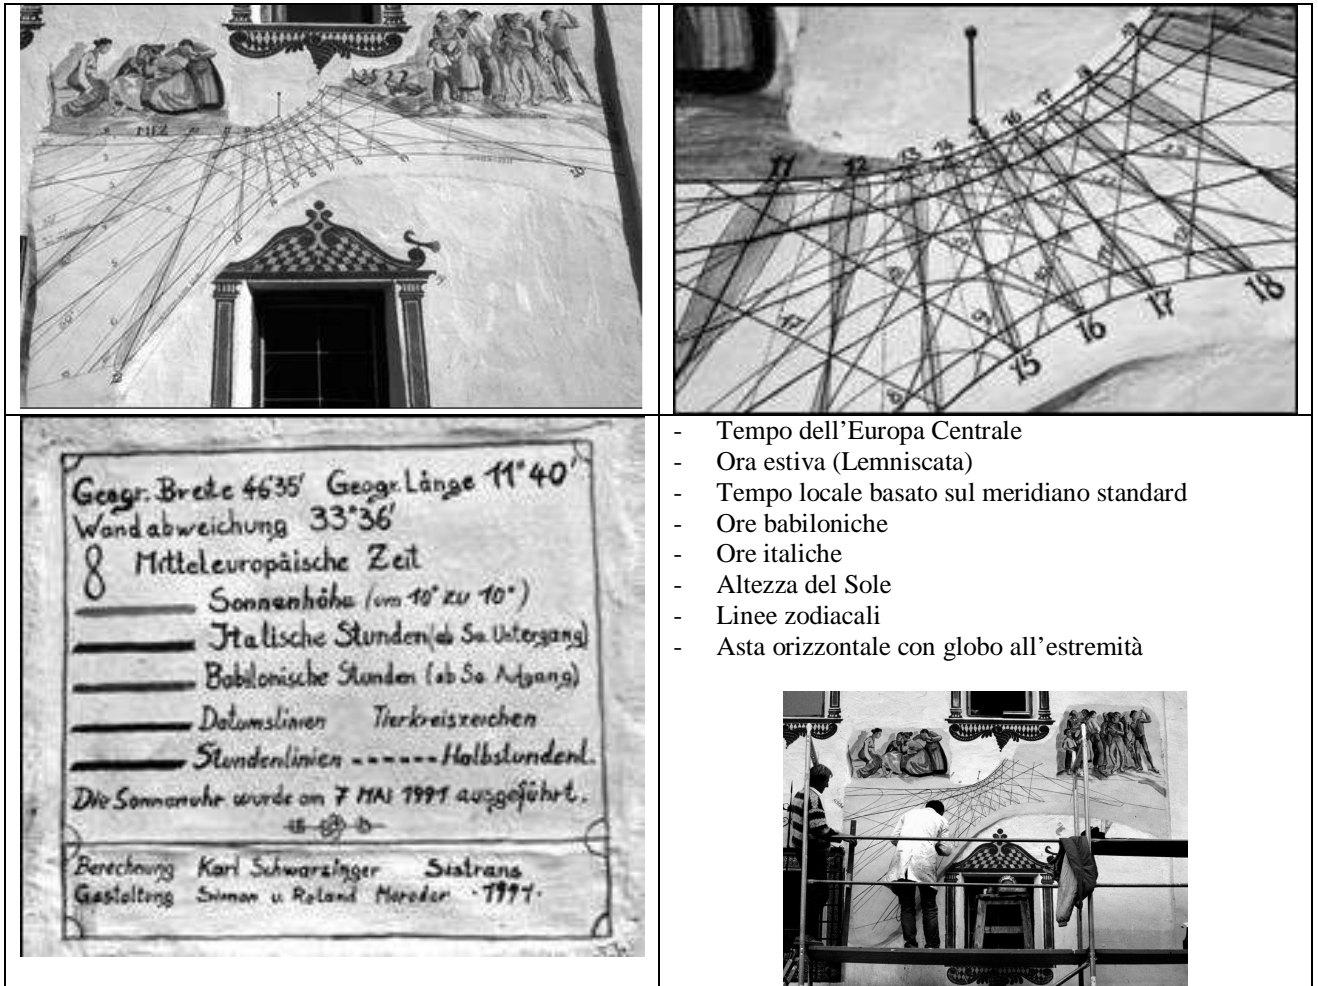 MEZ
11
12
13
14
16
17
15
16
17
18
Geogr. Breite 46°35' Geogr. Länge 11°40'
Wandabweichung 33°36'
8 Mitteleuropäische Zeit
Sonnenhöhe (um 10° zu 10°)
Italische Stunden (ab So. Untergang)
Babilonische Stunden (ab So. Aufgang)
Datumslinien Tierkreiszeichen
Stundenlinien ------ Halbstundenl.
Die Sonnenuhr wurde am 7 MAI 1991 ausgeführt.
Berechnung Karl Schwarzinger Sistrans
Gestaltung Simon u. Roland Moroder · 1991 ·
- Tempo dell’Europa Centrale
- Ora estiva (Lemniscata)
- Tempo locale basato sul meridiano standard
- Ore babiloniche
- Ore italiche
- Altezza del Sole
- Linee zodiacali
- Asta orizzontale con globo all’estremità